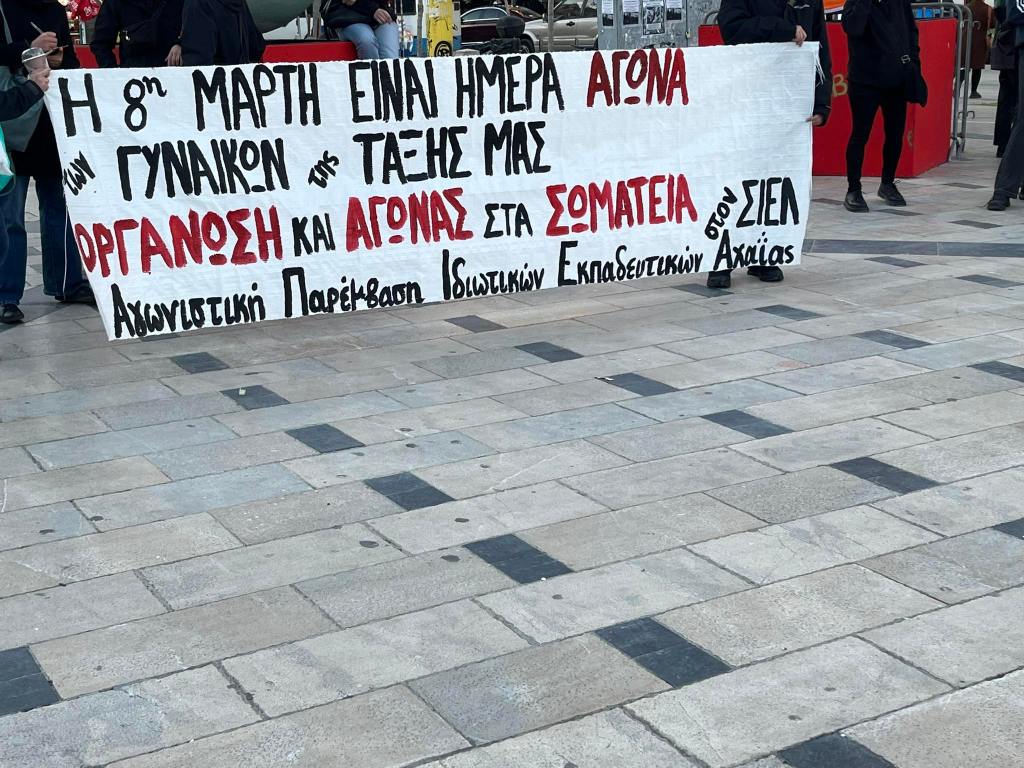 Η 8η ΜΑΡΤΗ ΕΙΝΑΙ ΗΜΕΡΑ ΑΓΩΝΑ
των ΓΥΝΑΙΚΩΝ της ΤΑΞΗΣ ΜΑΣ
ΟΡΓΑΝΩΣΗ ΚΑΙ ΑΓΩΝΑΣ ΣΤΑ ΣΩΜΑΤΕΙΑ στον ΣΙΕΛ
Αγωνιστική Παρέμβαση Ιδιωτικών Εκπαιδευτικών Αχαΐας